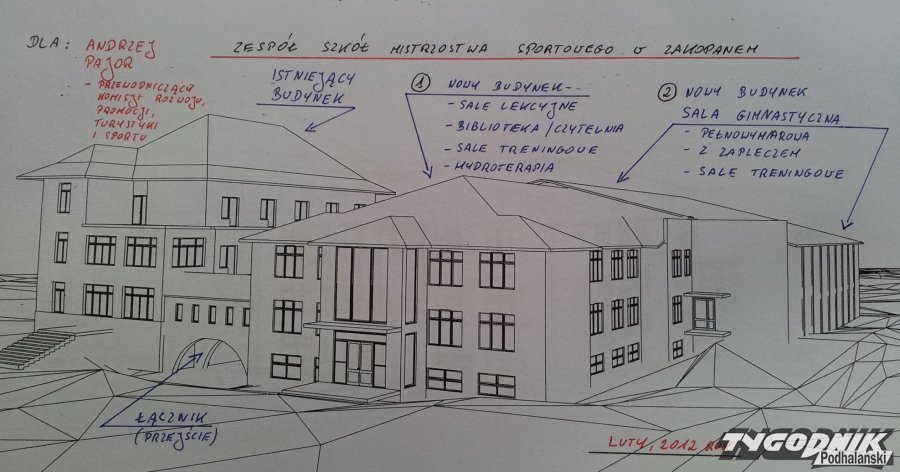 DLA: ANDRZEJ
PAJOR
- PRZEWODNICZĄCY
KOMISJI ROZWOJU,
PROMOCJI,
TURYSTYKI
I SPORTU
ZESPÓŁ SZKÓŁ MISTRZOSTWA SPORTOWEGO W ZAKOPANEM
ISTNIEJĄCY
BUDYNEK
1 NOWY BUDYNEK--
- SALE LEKCYJNE
- BIBLIOTEKA/CZYTELNIA
- SALE TRENINGOWE
- HYDROTERAPIA
2 NOWY BUDYNEK
SALA GIMNASTYCZNA
- PEŁNOWYMIAROWA
- Z ZAPLECZEM
- SALE TRENINGOWE
ŁĄCZNIK
(PRZEJŚCIE)
LUTY, 2012
TYGODNIK
Podhalański